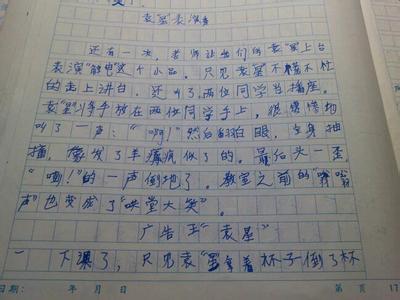 袁"星"表演秀
还有一次，老师让出们的袁"星"上台
表演"触电"这个小品。只见袁星不慌不忙
的走上讲台，还叫了两位同学当插座。
袁"星"双手放在两位同学手上，很惨惨地
叫了一声："啊！"然后翻白眼，全身抽
搐，像发了羊癫疯似了的。最后头一歪
"嘭！"的一声倒地了。教室之前的"嗡嗡
声"也变成了"哄堂大笑"。
广告王"袁星"
下课了，只见袁"星"拿着杯子倒了杯
日期： 年 月 日 第 页 17